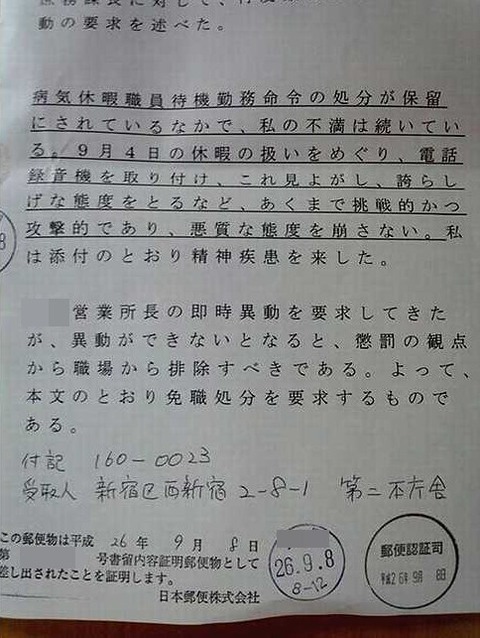 動の要求を述べた。
病気休暇職員待機勤務命令の処分が保留
にされているなかで、私の不満は続いてい
る。9月4日の休暇の扱いをめぐり、電話
録音機を取り付け、これ見よがし、誇らし
げな態度をとるなど、あくまで挑戦的かつ
攻撃的であり、悪質な態度を崩さない。私
は添付のとおり精神疾患を来した。
営業所長の即時異動を要求してきた
が、異動ができないとなると、懲罰の観点
から職場から排除すべきである。よって、
本文のとおり免職処分を要求するもので
ある。
付記 160-0023
受取人 新宿区西新宿2-8-1 第二本庁舎
この郵便物は平成 26年 9月 8日
第 号書留内容証明郵便物として
差し出されたことを証明します。
日本郵便株式会社
26.9.8
8-12
郵便認証司
平成26年9月8日
8